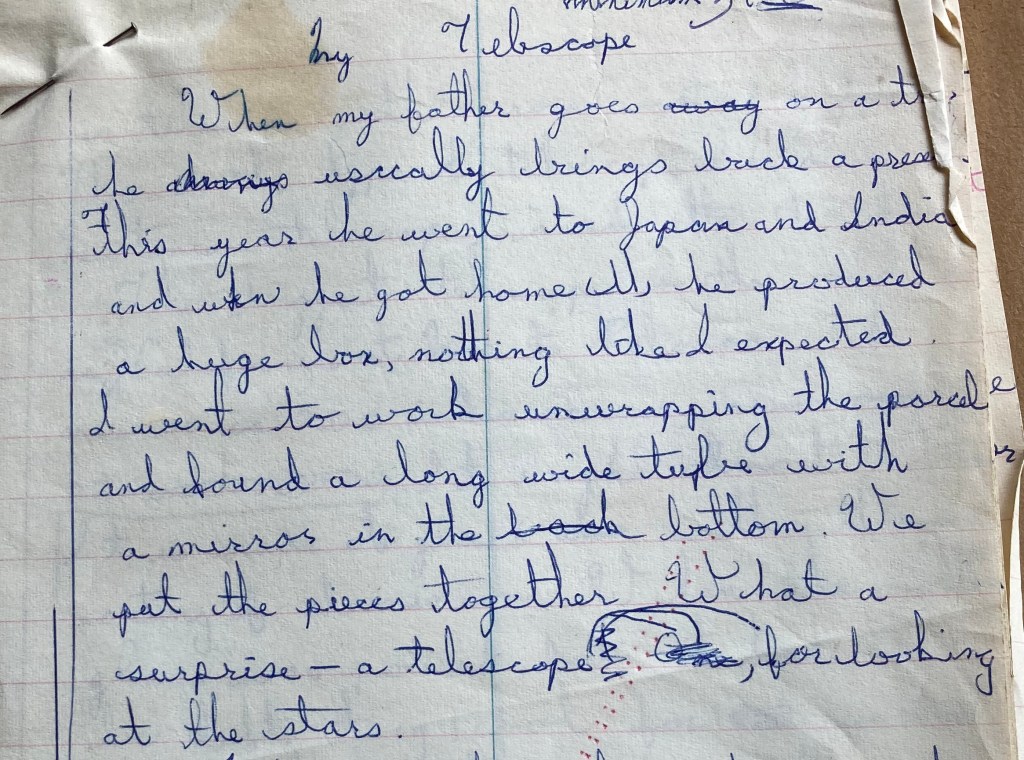 My Telescope
When my father goes away on a
he always usually brings back a
This year he went to Japan and India
and when he got home he produced
a huge box, nothing like I expected.
I went to work unwrapping the parcel
and found a long wide tube with
a mirror in the back bottom. We
put the pieces together What a
surprise - a telescope, for looking
at the stars.